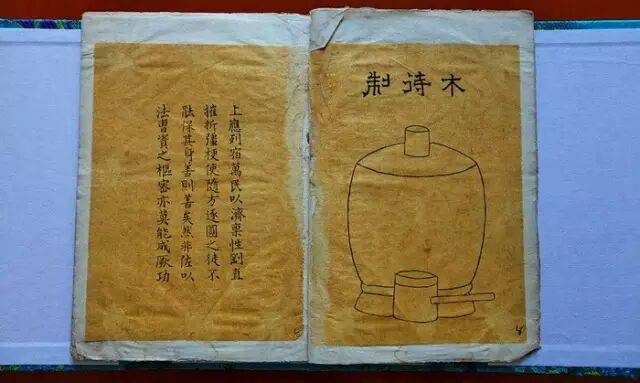 木待制
上應列宿萬民以濟稟性剛直
摧折彊梗使隨方逐圓之徒不
能保其身善則善矣然非佐以
法曹資之樞密亦莫能成厥功